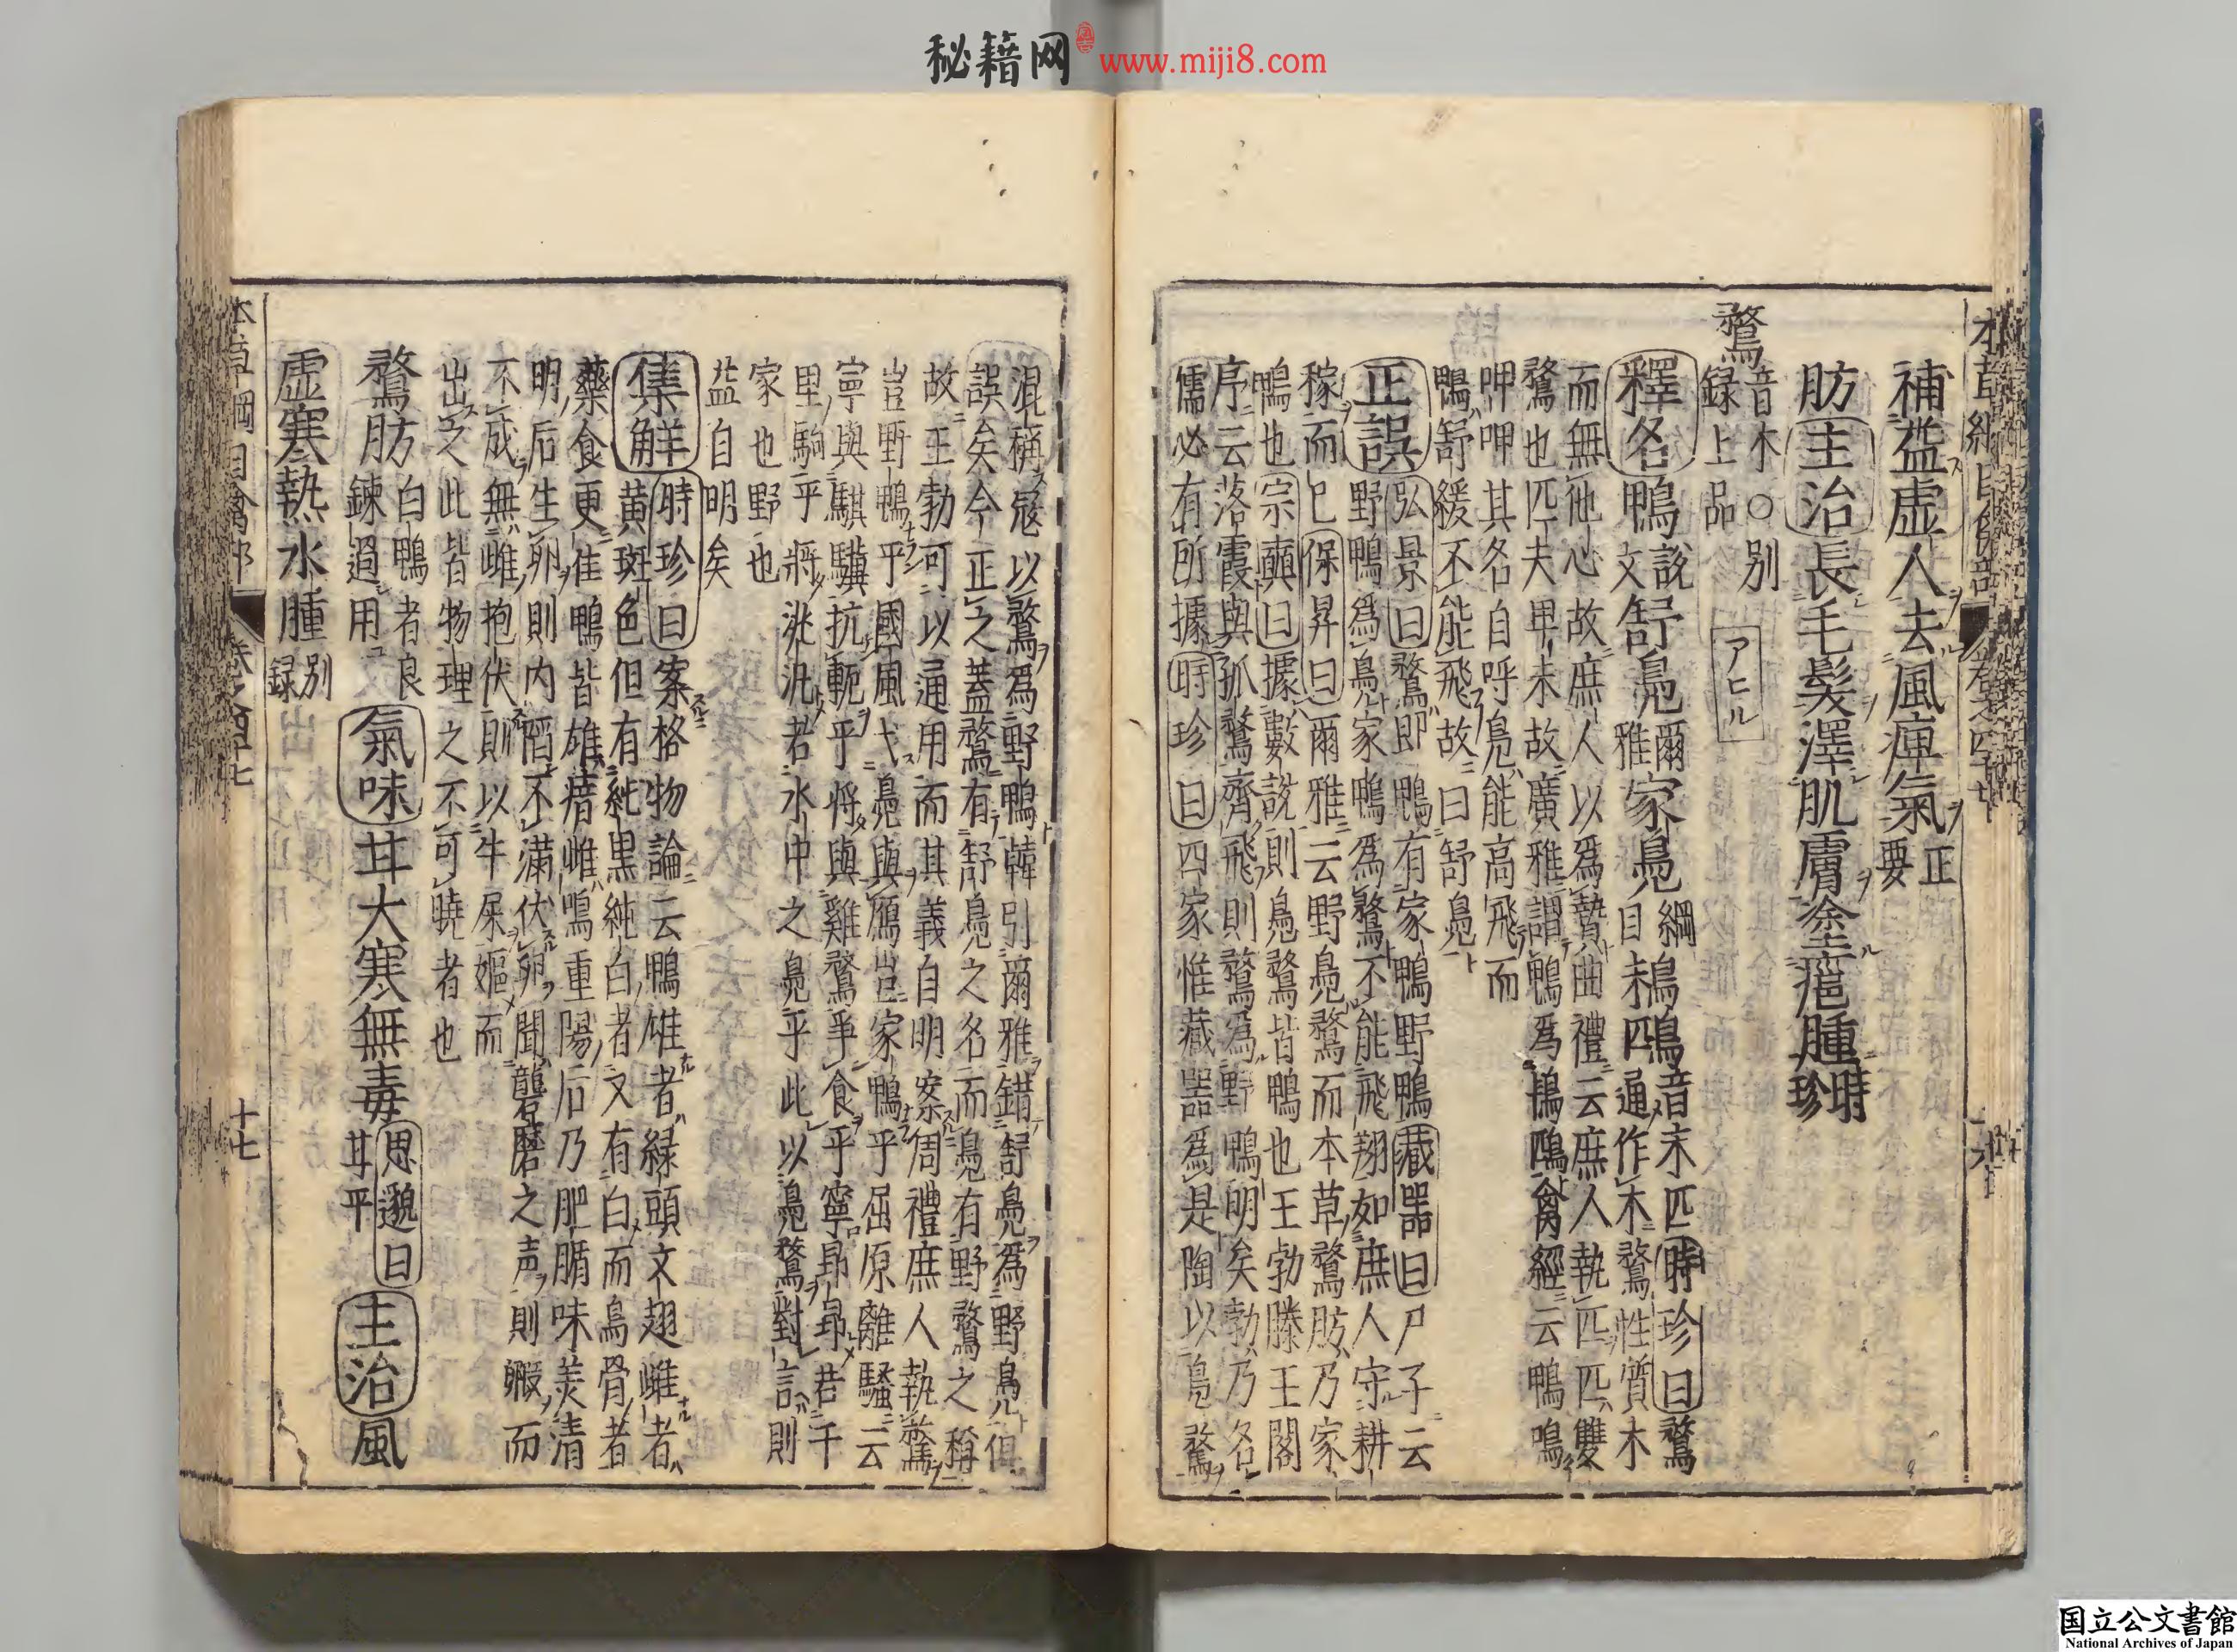 秘籍网 www.miji8.com
補益虛人去風痺氣正要
肪主治長毛髮澤肌膚塗瘡腫時珍
鶩音木○別録上品
アヒル
釋名鴨說文舒鳧爾雅家鳧綱目䳱鴄音末匹時珍曰鶩
通作木鶩性質木
而無他心故庶人以為贄曲禮云庶人執匹匹雙
鶩也匹夫卑末故廣雅謂鴨為䳱鴄禽經云鴨鳴
呷呷其名自呼鳧能高飛而
鴨舒緩不能飛故曰舒鳧
正誤弘景曰鶩即鴨有家鴨野鴨藏器曰尸子云
野鴨爲鳧家鴨爲鶩不能飛翔如庶人守耕
稼而已保昇曰爾雅云野鳧鶩而本草鶩肪乃家
鴨也宗奭曰據數說則鳧鶩皆鴨也王勃滕王閣
序云落霞與孤鶩齊飛則鶩爲野鴨明矣勃乃名
儒必有所據時珍曰四家惟藏器爲是陶以鳧鶩
混稱寇以鶩爲野鴨韓引爾雅錯舒鳧爲野鳧但
誤矣今正之蓋鶩有舒鳧之名而鳧有野鶩之稱
故王勃可以通用而其義自明案周禮庶人執鶩
豈野鴨乎國風弋鳧與鴈豈家鴨乎屈原離騷云
寧與騏驥抗軛乎將與雞鶩爭食乎寧昻昻若千
里駒乎將泛泛若水中之鳧乎此以鳧鶩對言則
家也野也
益自明矣
集解時珍曰案格物論云鴨雄者緑頭文翅雌者
黄斑色但有純黒純白者又有白而烏骨者
藥食更佳鴨皆雄瘖雌鳴重陽后乃肥腯味美清
明后生卵則内陷不滿伏卵聞礱磨之声則毈而
不成無雌抱伏則以牛屎嫗而
出之此皆物理之不可曉者也
鶩肪白鴨者良錬過用氣味甘大寒無毒思邈曰甘平主治風
虛寒熱水腫別録
本草綱目禽部
十七
国立公文書館
National Archives of Japan